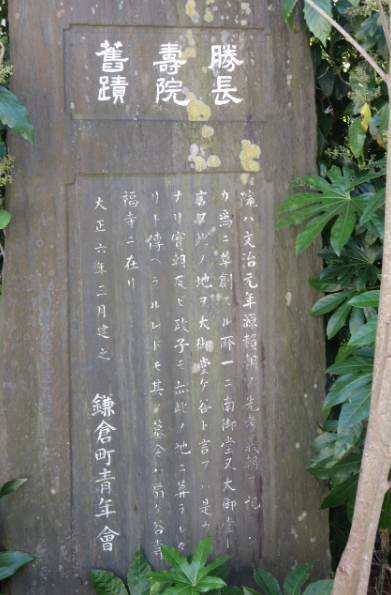 勝長
壽院
舊蹟
院ハ文治元年源頼朝ノ先考義朝ヲ祀
カ為ニ草創スル所一ニ南御堂又大御堂ト
言フ此ノ地ヲ大御堂ケ谷ト言フハ是カ
ナリ實朝及ビ政子モ亦此ノ地ニ葬ラレタ
リト傳ヘラルレドモ其ノ墓今ハ扇ケ谷寺
福寺ニ在リ
大正六年三月建之
鎌倉町青年會